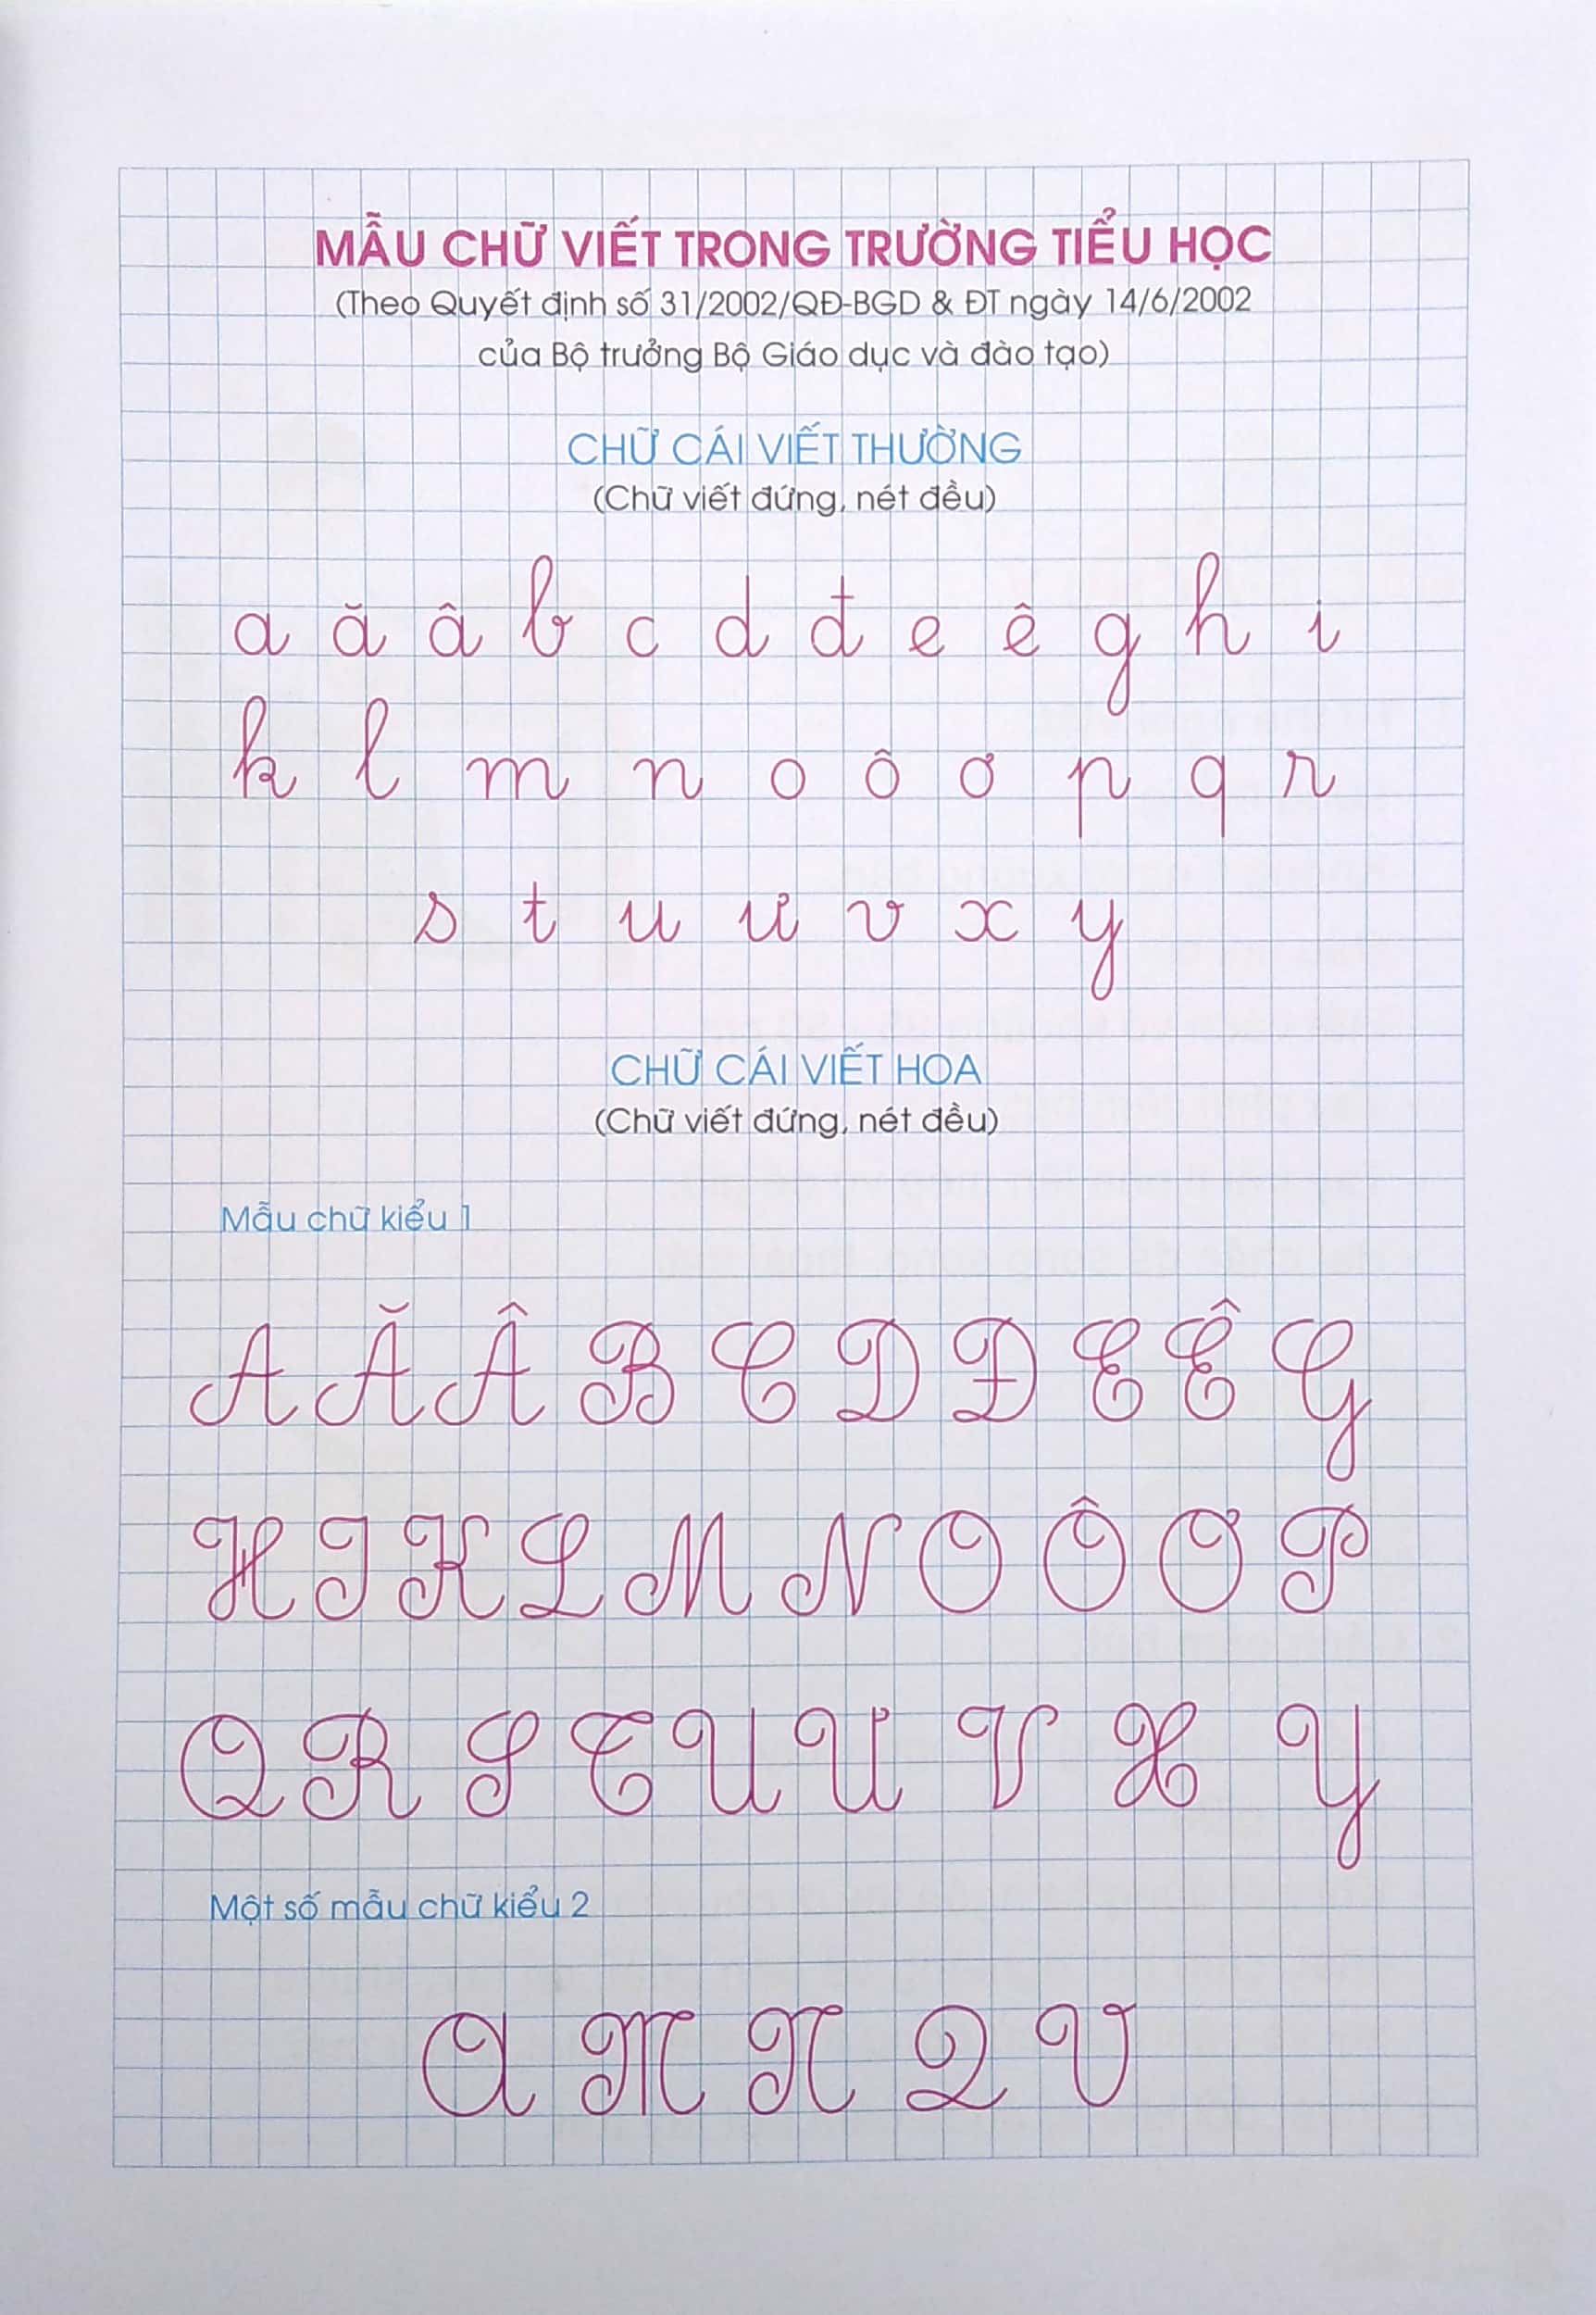 MẪU CHỮ VIẾT TRONG TRƯỜNG TIỂU HỌC
(Theo Quyết định số 31/2002/QĐ-BGD & ĐT ngày 14/6/2002
của Bộ trưởng Bộ Giáo dục và đào tạo)
CHỮ CÁI VIẾT THƯỜNG
(Chữ viết đứng, nét đều)
a ă â b c d đ e ê g h i
k l m n o ô ơ p q r
s t u ư v x y
CHỮ CÁI VIẾT HOA
(Chữ viết đứng, nét đều)
Mẫu chữ kiểu 1
A Ă Â B C D Đ E Ê G
H I K L M N O Ô Ơ P
Q R S T U Ư V X Y
Một số mẫu chữ kiểu 2
A M N Q V